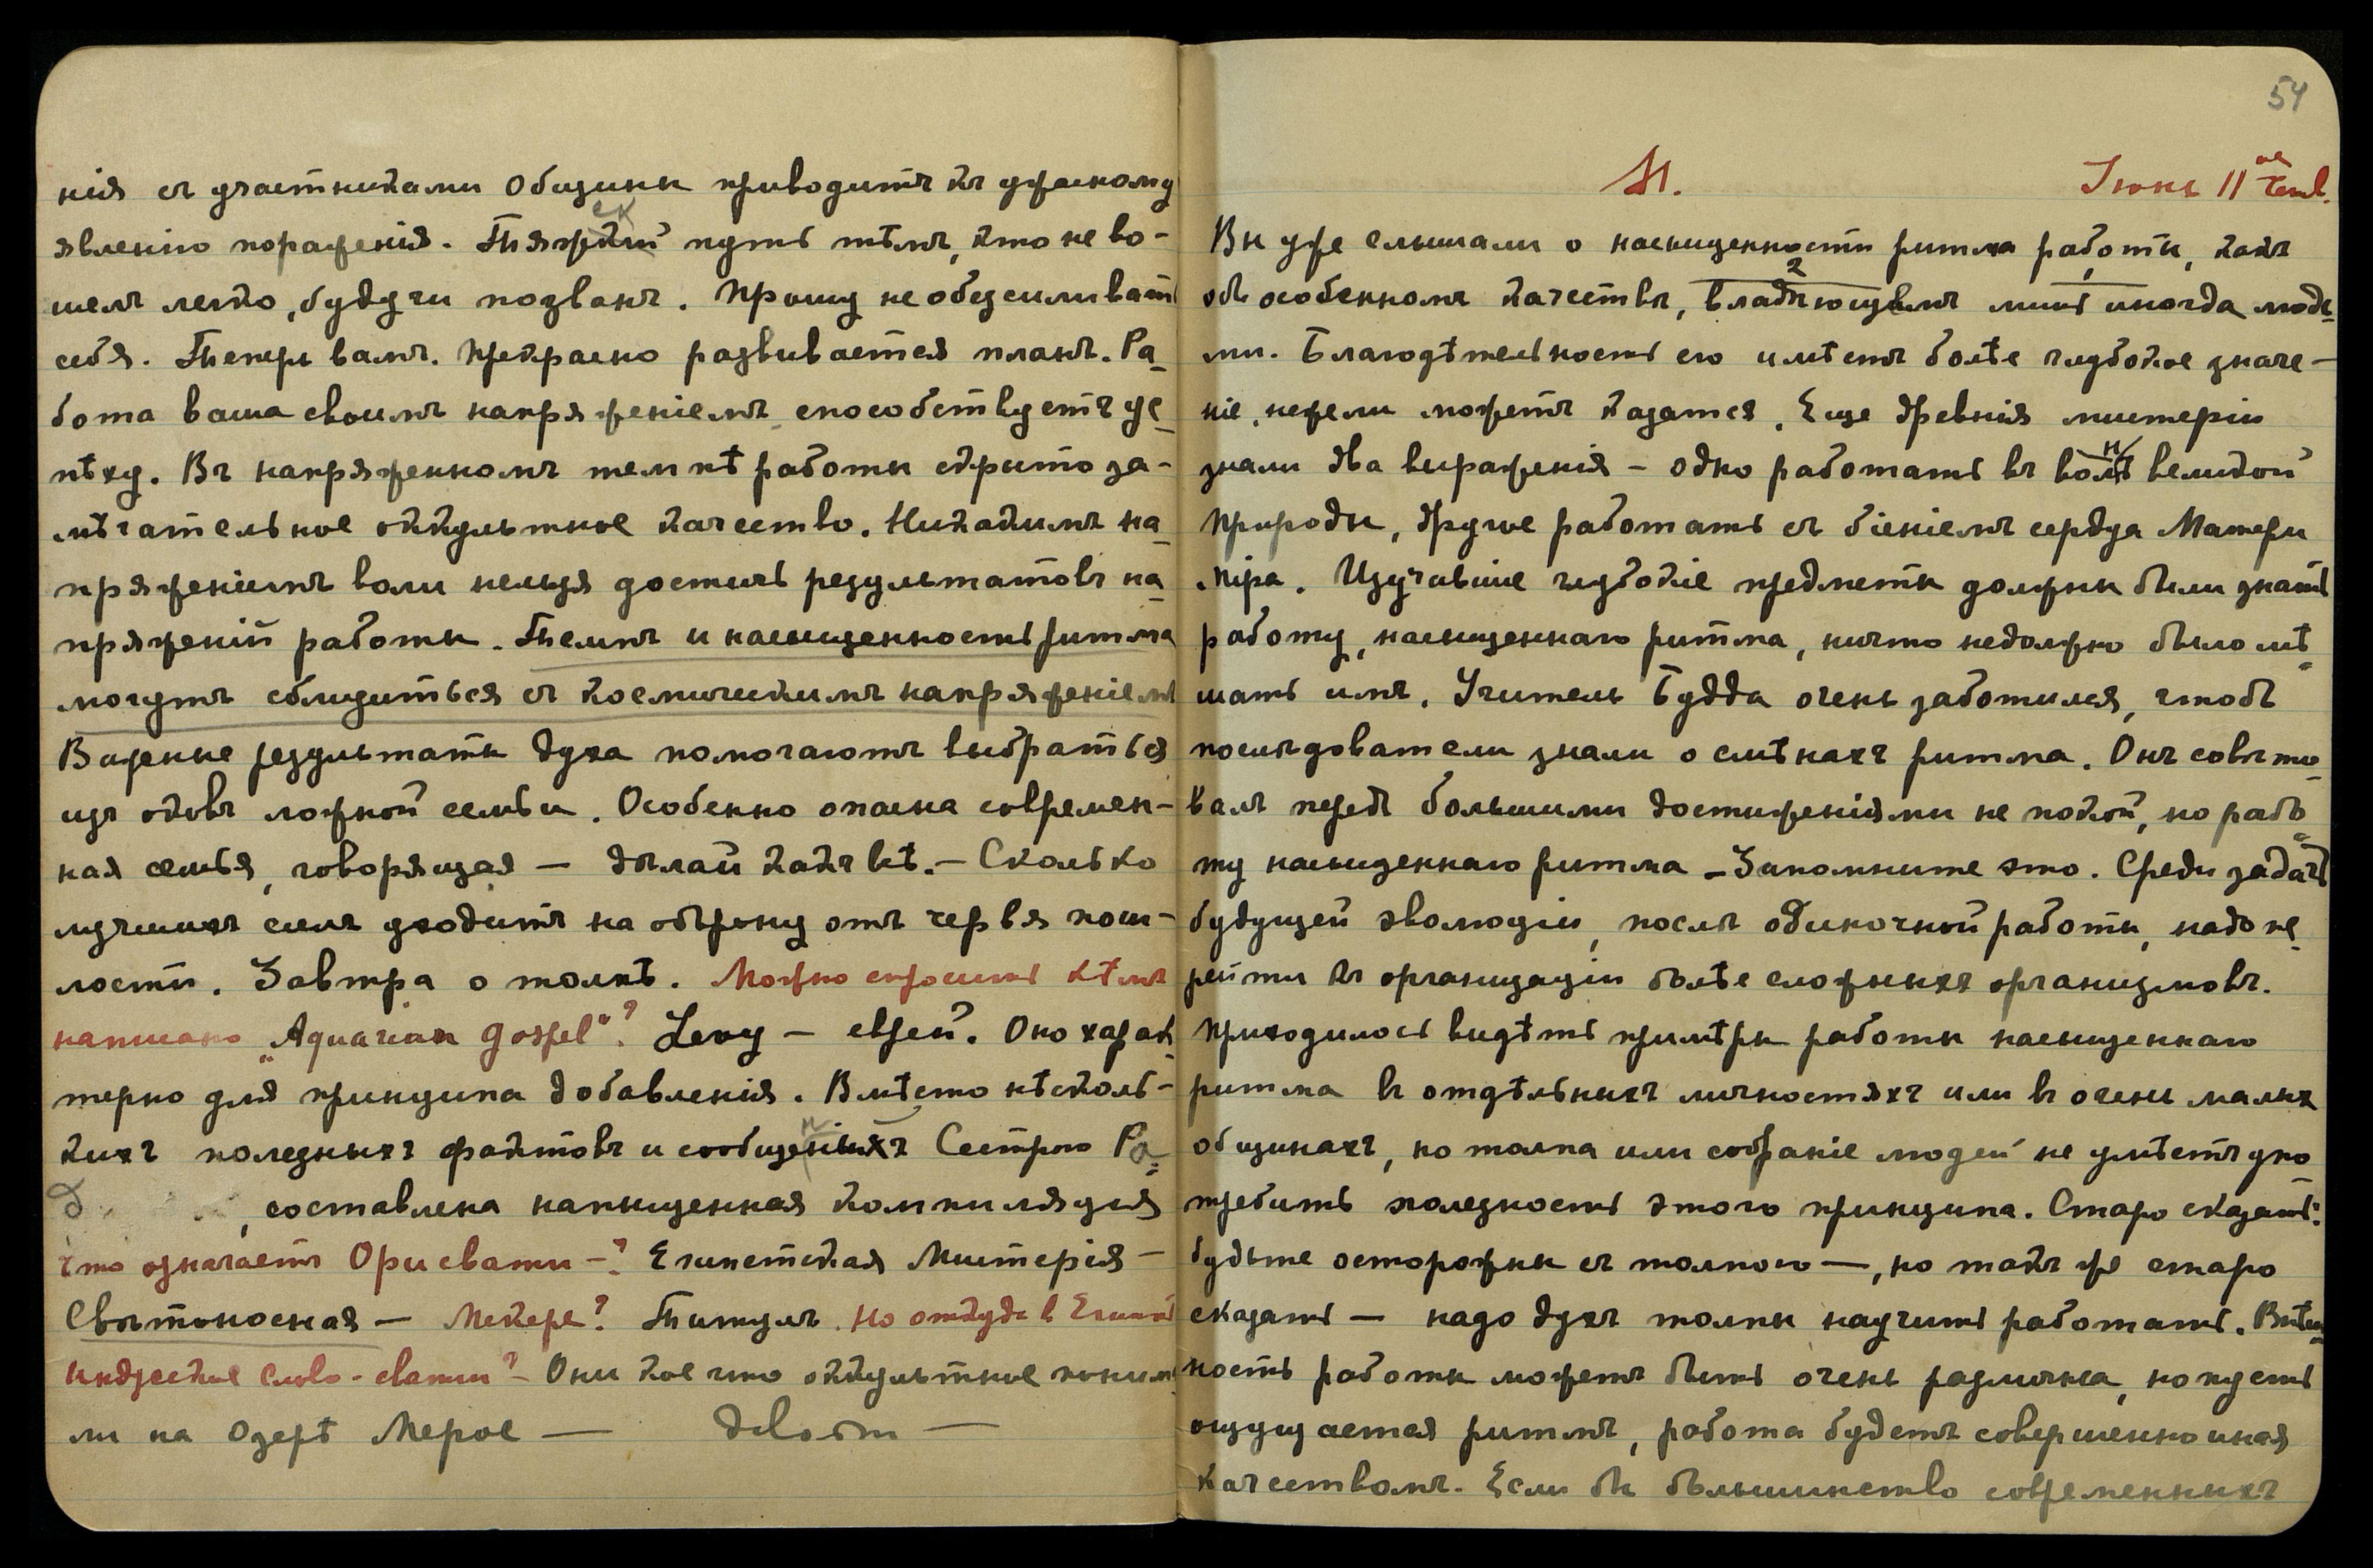 нія съ участниками Общины приводитъ къ ужасному
явленію пораженія. Тяжкій путь тѣмъ, кто не во-
шелъ легко, будучи позванъ. Прошу не обезсиливать
себя. Теперь вамъ. Прекрасно развивается планъ. Ра-
бота ваша своимъ напряженіемъ способствуетъ ус-
пѣху. Въ напряженномъ темпѣ работы скрыто за-
мѣчательное оккультное качество. Никакимъ на-
пряженіемъ воли нельзя достичь результатовъ на-
пряженій работы. Темпъ и насыщенность ритма
могутъ сблизиться съ космическимъ напряженіемъ
Важные результаты духа помогаютъ выбраться
изъ оковъ ложной семьи. Особенно опасна современ-
ная семья, говорящая — дѣлай какъ всѣ. — Сколько
лучшихъ силъ уходитъ на оборону отъ червя пош-
лости. Завтра о толпѣ. Можно спросить кѣмъ
написано „Aquarian Gospel"? Levy — еврей. Оно харак-
терно для принципа добавленія. Вмѣсто нѣсколь-
кихъ полезныхъ фактовъ и сообщеній Сестрою Ра-
составлена напыщенная компиляція
Что означаетъ Орисвати -? Египетская Мистерія —
Свѣтоносная — Мекере? Титулъ. Но откуда в Египтѣ
индусское слово - свати? - Они кое что оккультное понима-
ли на Озерѣ Мерое — довольно —
54
М. Іюнь 11 ое Четв.
Вы уже слышали о насыщенности ритма работы, какъ
объ особенномъ качествѣ, владѣющимъ лишь иногда людь-
ми. Благодѣтельность его имѣетъ болѣе глубокое значе-
ніе, нежели можетъ казаться. Еще древнія мистеріи
знали два выраженія — одно работать въ волнѣ великой
Природы, другое работать съ біеніемъ сердца Матери
Міра. Изучавшіе глубокіе предметы должны были знать
работу, насыщеннаго ритма, ничто недолжно было мѣ-
шать имъ. Учитель Будда очень заботился, чтобъ
послѣдователи знали о смѣнахъ ритма. Онъ совѣто-
валъ передъ большими достиженіями не покой, но рабо-
ту насыщеннаго ритма — Запомните это. Среди задачъ
будущей эволюціи, послѣ одиночной работы, надо пе-
рейти къ организаціи болѣе сложныхъ организмовъ.
Приходилось видѣть примѣры работы насыщеннаго
ритма въ отдѣльныхъ личностяхъ или въ очень малыхъ
общинахъ, но толпа или собраніе людей не умѣетъ упо-
требить полезность этого принципа. Старо сказать:
будьте осторожны съ толпою —, но такъ же старо
сказать — надо духъ толпы научить работать. Внѣш-
ность работы можетъ быть очень различна, но пусть
ощущается ритмъ, работа будетъ совершенно иная
качествомъ. Если бы большинство современныхъ